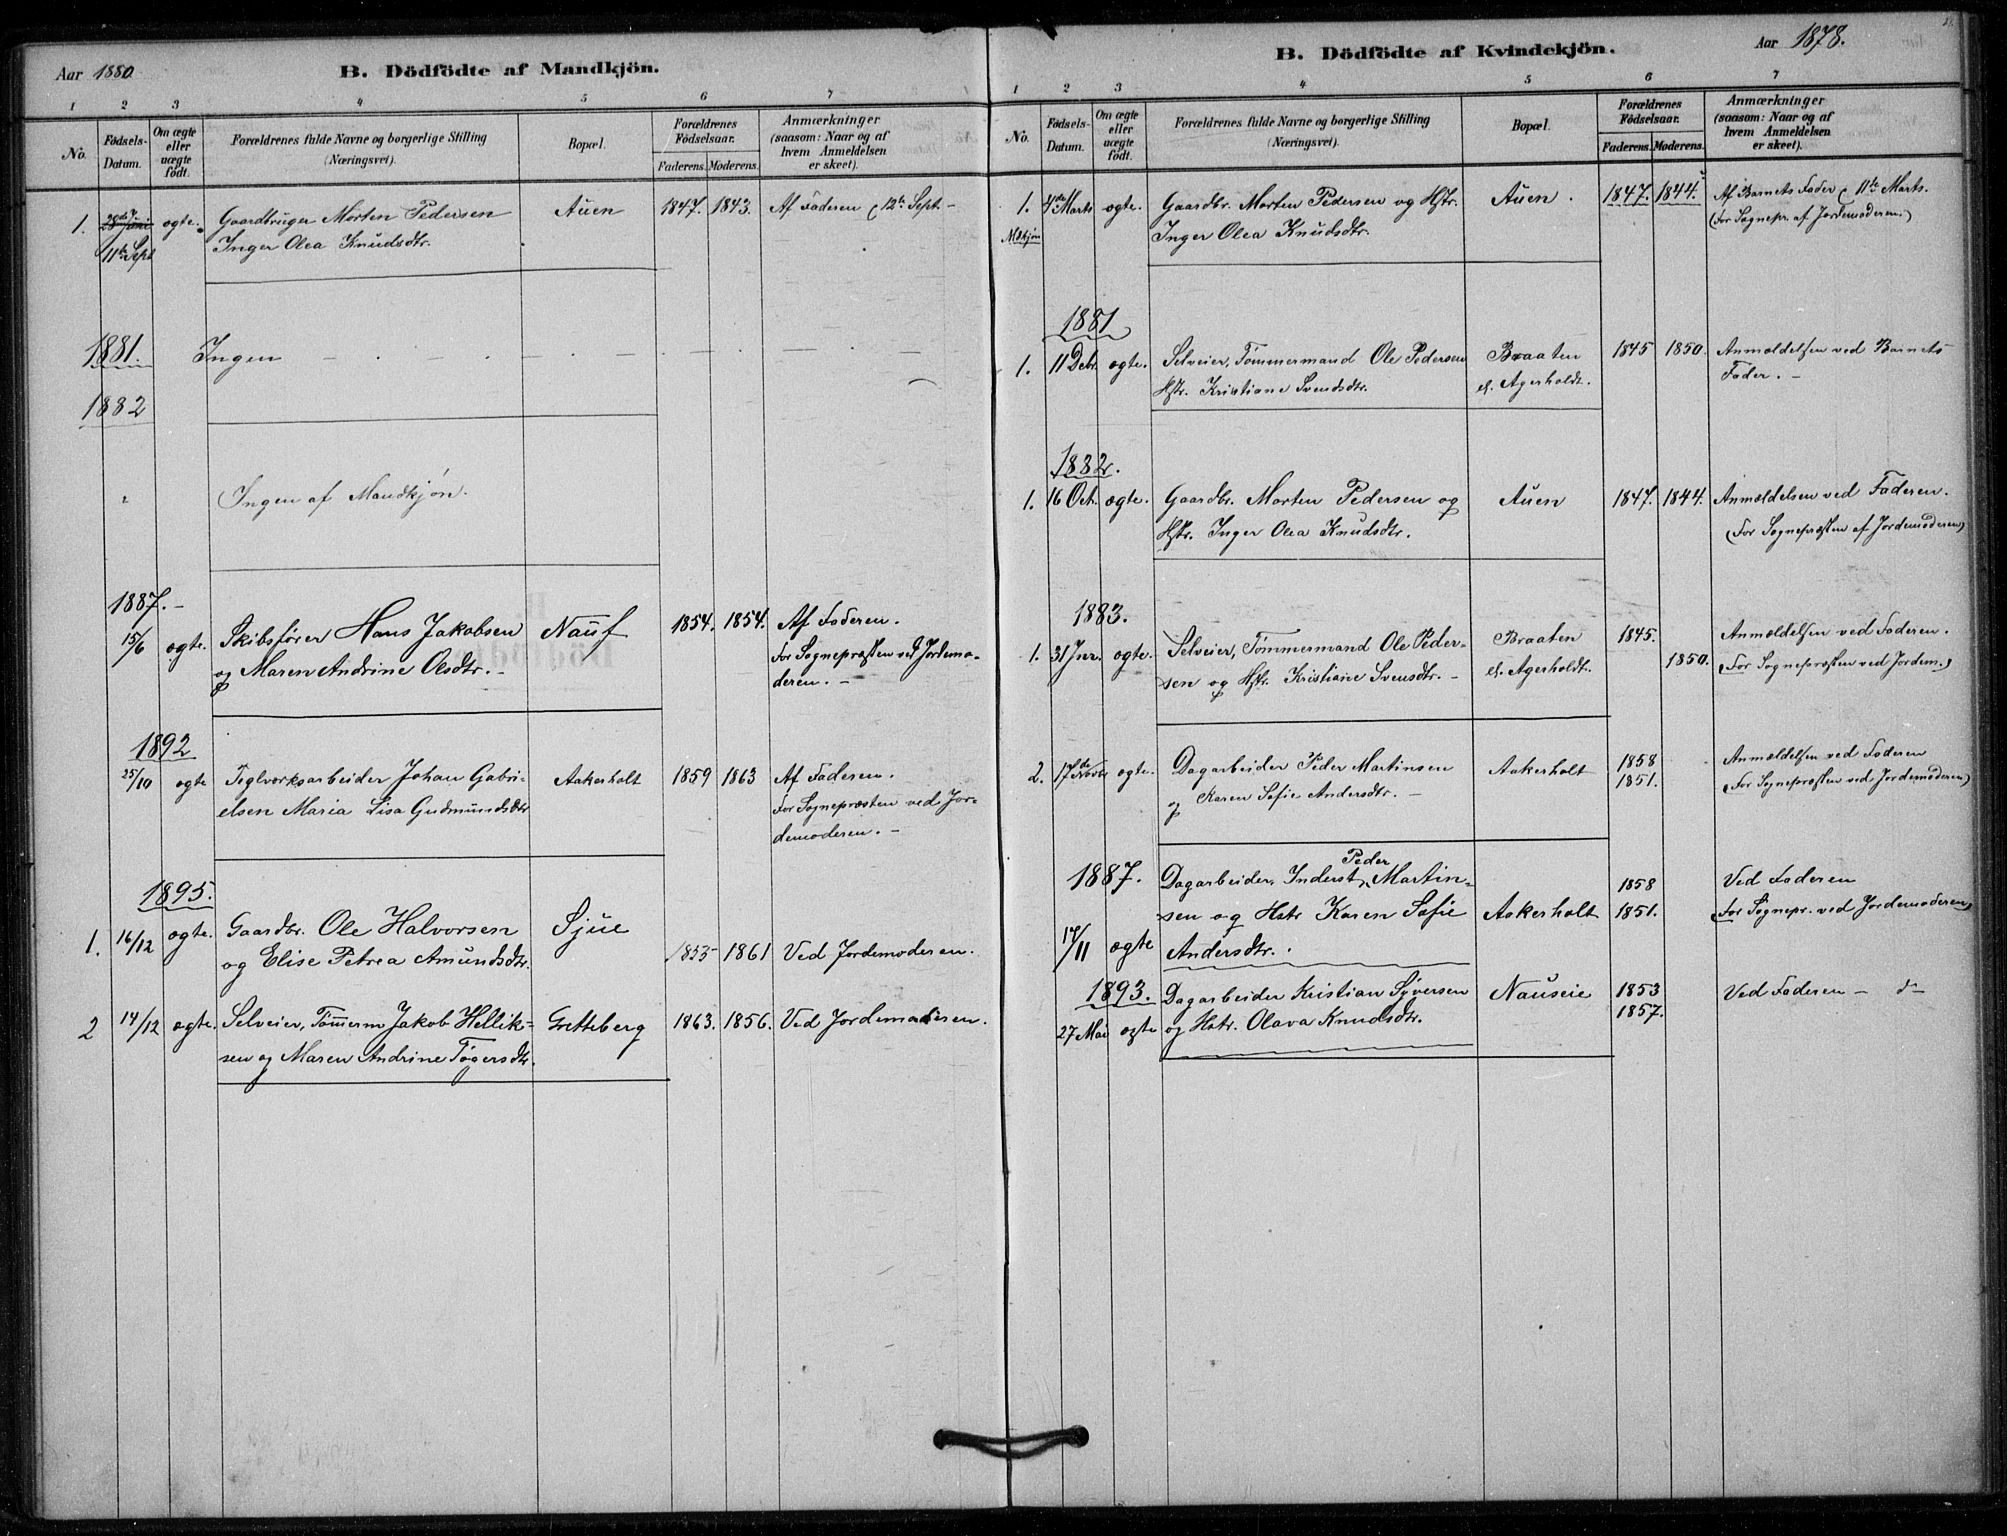 Aar 1880
B. Dödfödte af Mandkjön.
1 2 3 4 5 6 7
No.
Födsels-
Datum.
Om ægte
eller
uægte
födt.
Forældrenes fulde Navne og borgerlige Stilling
(Næringsvei).
Bopæl.
Forældrenes
Födselsaar.
Faderens. Moderens.
Anmærkninger
(saasom: Naar og af
hvem Anmeldelsen
er skeet).
1. 28de Juni ægte. Gaardbruger Morten Pedersen Auen 1847. 1843. Af Faderen (12te Sept. -
11te Sept Inger Olea Knudsdtr.
1881. Ingen
1882
Ingen af Mandkjøn.
1887. -
15/6 ægte. Skibsfører Hans Jakobsen Nauf 1854. 1854. Af Faderen.
og Maren Andrine Olsdtr. - For Sognepræsten ved Jordemo-
deren. -
1892
25/10 ægte Teglværksarbeider Johan Gabri- Aakerholt 1859 1863 Af Faderen.
elsen Maria Lisa Gudmundsdtr For Sognepræsten ved Jor-
demoderen. -
1895.
1. 16/12 ægte. Gaardbr. Ole Halvorsen Sjue 1855 1861 Ved Jordemoderen.
og Elise Petrea Amundsdtr.
2 14/12 ægte. Selveier, Tømmerm Jakob Hellik- Gretteberg 1863. 1856. Ved Jordemoderen.
sen og Maren Andrine Tøgersdtr.
B. Dödfödte af Kvindekjön.
Aar 1878.
1 2 3 4 5 6 7
No.
Födsels-
Datum.
Om ægte
eller
uægte
födt.
Forældrenes fulde Navne og borgerlige Stilling
(Næringsvei).
Bopæl.
Forældrenes
Födselsaar.
Faderens. Moderens.
Anmærkninger
(saasom: Naar og af
hvem Anmeldelsen
er skeet).
1. 4de Marts ægte. Gaardbr. Morten Pedersen og Hstr. Auen. 1847. 1844. Af Barnets Fader (11te Marts.
Inger Olea Knudsdtr. (For Sognepr. af Jordemoderen.)
1881
1. 11 Debr. ægte. Selveier, Tømmermand Ole Pedersen Braaten 1845 1850. Anmeldelsen ved Barnets
Hstr. Kristiane Svendsdtr. e. Agerholdt. Fader. -
1882.
1. 16 Oct. ægte. Gaardbr. Morten Pedersen og Auen 1847. 1844. Anmeldelsen ved Faderen.
Hstr. Inger Olea Knudsdtr. (For Sognepræsten af Jordemoderen)
1883.
1. 31 Jnr. ægte. Selveier, Tømmermand Ole Peder- Braaten 1845. Anmeldelsen ved Faderen.
sen og Hstr. Kristiane Svensdtr. - e. Agerholdt. 1850. (For Sognepræsten ved Jordem.)
2. 17de Novbr ægte. Dagarbeider Peder Martinsen Aakerholt 1858 Anmeldelsen ved Faderen
og Karen Sofie Andersdtr. - 1851. (For Sognepræsten ved Jordemoderen)
1887. Dagarbeider, Inderst, Peder Martin- 1858 Ved Faderen
sen og Hstr Karen Sofie Aakerholt 1851. For Sognepr. ved Jordemoderen)
/11 ægte Andersdtr.
1893. Dagarbeider Kristian Syversen Nauseie 1853 Ved Faderen -
27 Mai ægte og Hstr. Olava Knudsdtr. 1857.